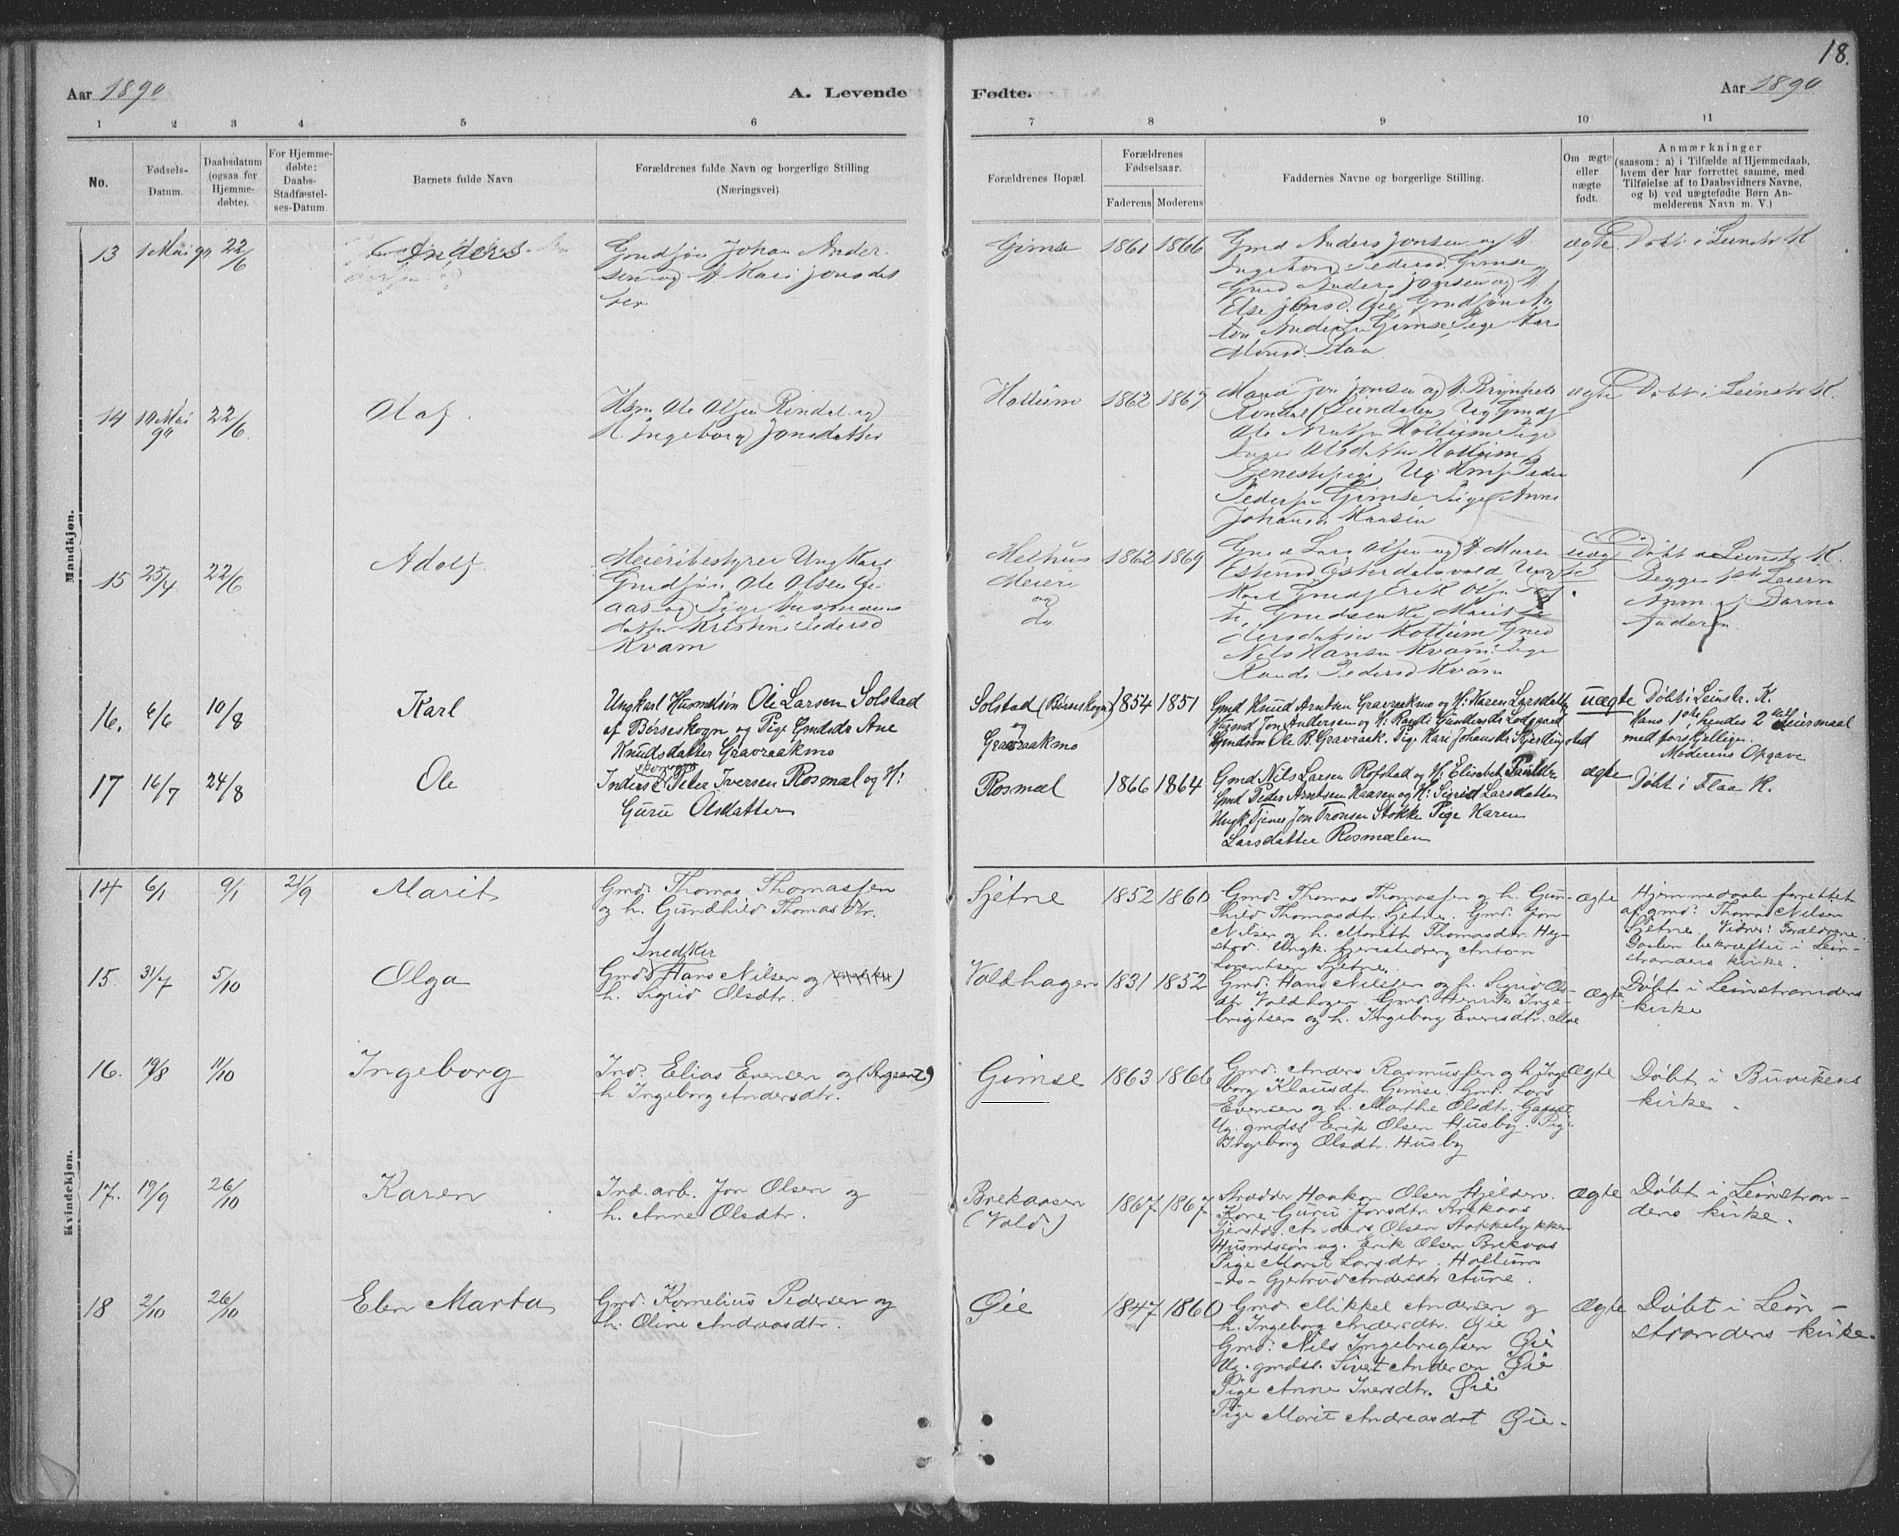 18.
Aar 1890
A. Levende
Fødte.
Aar 1890
1 2 3 4 5 6 7 8 9 10 11
No.
Fødsels-
Datum.
Daabsdatum
(ogsaa for
Hjemme-
døbte).
For Hjemme-
døbte:
Daabs-
Stadfæstel-
ses-Datum.
Barnets fulde Navn
Forældrenes fulde Navn og borgerlige Stilling
(Næringsvei)
Forældrenes Bopæl.
Forældrenes
Fødselsaar.
Faderens Moderens
Faddernes Navne og borgerlige Stilling.
Om ægte
eller
uægte
født.
Anmærkninger
(saasom: a) i Tilfælde af Hjemmedaab,
hvem der har forrettet samme, med
Tilføielse af to Daabsvidners Navne,
og b) ved uægtefødte Børn An-
melderens Navn m. V.)
Mandkjøn.
13 1 Mai 90 22/6 Anders
Gmdsøn Johan Ander-
sen og H Mari Jonsdat
ter
Gimse 1861 1866
Gmd Anders Jonsen og H
Ingeborg Pedersd. Gimse
Gmd Anders Jonsen og H
Else Jonsd. Øie Gmdsøn An
ton Anders Gimse Pige Kari
Monsd. Staa
ægte Døbt i Leinstr K
14 10 Mai 90 22/6 Olaf
Hsm Ole Olsen Rindal og
H. Ingeborg Jonsdatter
Hollum 1862 1867
Jon Jonsen og H Brynhild
Ole Hollum Pige
Inger Olsdatter Hollum
Tjenestepige Ug Peder
Pedersen Gimse Pige Anne
Johansd Kaasen
ægte Døbt i Leinstr K.
15 25/4 22/6 Adolf
Meieribestyrer Ungkarl
Gmdsøn Ole Olsen
aas og Pige Husmands
datter Kristine Pedersd
Kvam
Melhus
Meieri
og
do
1862 1869
Gmd Lars Olsen og H Maren
Espensd Østerdalsvold
Gmds Erik Olsen
Marit
dersdatter Hollum Gmd
Nils Hansen Kvam Pige
Randi Pedersd Kvam
uæg
te
Døbt i Leinstr K.
Begges 1ste Leierm
Anm af Barne
faderen
16. 6/6 10/8 Karl
Ungkarl Husmdsøn Ole Larsen Solstad
af Børseskogn og Pige Gmdsdr Ane
Knudsdatter Gravraakmo
Solstad (Børseskogn)
og
Gravraakmo
1854 1851
Gmd Knud Arntsen Gravraakmo og H: Karen Larsdatter
Husmd Jon Andersen og H: Randi Gundersd. Lodgaard
Gmdsøn Ole B. Gravraak. Pige Kari Johansdr Skjerdingstad
uægte
Døbt i Leinstr. K.
Hans 1ste hendes 2det Leiermaal
med forskjellige.
Moderens Opgave
17 16/7 24/8 Ole
Inderst Peter Iversen Rosmæl og H:
Guru Olsdatter
Rosmæl 1866 1864
Gmd Nils Larsen Rofstad og H: Elisabet Paulsdr
Gmd Peder Arntsen Kaasen og H: Sigrid Larsdatter
Ungk Tjener Jon Tronsen Stokke Pige Karen
Larsdatter Rosmælen
ægte Døbt i Flaa K.
Kvindekjøn.
14 6/1 9/1 21/9 Marit
Gmd: Thomas Thomassen
og h. Gundhild Thomasdtr.
Sjetne 1852 1860
Gmd: Thomas Thomassen og h. Gun-
hild Thomasdtr. Sjetne. Gmd. Jon
Nilsen og h. Maritt Thomasdtr. Heg-
stad. Ungk. tjenestedreng Anton
Lorentsen Sjetne.
Ægte
Hjemmedaab forrettet
af gmd: Thomas Nilsen
Sjetne. Vidner: Forældrene.
Daaben bekræftet i Lein-
strandens kirke.
15. 31/7 5/10 Olga
Snedker
Gmd Hans Nilsen og
h. Sigrid Olsdtr.
Voldhagen 1831 1852
Gmd: Hans Nilsen og h. Sigrid Ols-
dtr. Voldhagen. Gmd: Henrik Inge-
brigtsen og h. Ingeborg Evensdtr. Moe
Ægte
Døbt i Leinstrandens
kirke
16. 19/8 11/10 Ingeborg
Ind: Elias Evensen og
h. Ingeborg Andersdtr.
Gimse 1863 1866
Gmd: Anders Rasmussen og h. Inge-
borg Klausdtr. Gimse. Gmd: Lars
Evensen og h. Marthe Olsdtr.
Ug. gmdss. Erik Olsen Husby. Pige
Ingeborg Olsdtr. Husby
Ægte
Døbt i Buvikens
kirke.
17. 19/9 26/10 Karen
Ind. arb. Jon Olsen og
h. Anne Olsdtr.
Brekaasen
(Vold)
1867 1867
Skrædder Haakon Olsen Hjelden.
Kone Guru Jonsdtr. Brekaas
Anders Olsen Stokkebykken
Husmdssøn ug. Erik Olsen Brekaas
Pige Marit Larsdtr. Hollum
-do- Gjertrud Andersdtr Aune.
Ægte
Døbt i Leinstran-
dens kirke.
18 2/10 26/10 Elen Marta
Gmd: Kornelius Pedersen og
h. Oline Andreasdtr.
Øie 1847 1860
Gmd: Mikkel Andersen og
h. Ingeborg Andersdtr. Øie
Gmd: Nils Ingebrigtsen Øie
Ug. gmdss. Sivert Andersen Øie
Pige Anne Iversdtr. Øie
Pige Marit Andreasdat Øie.
Ægte
Døbt i Lein-
strandens kirke.